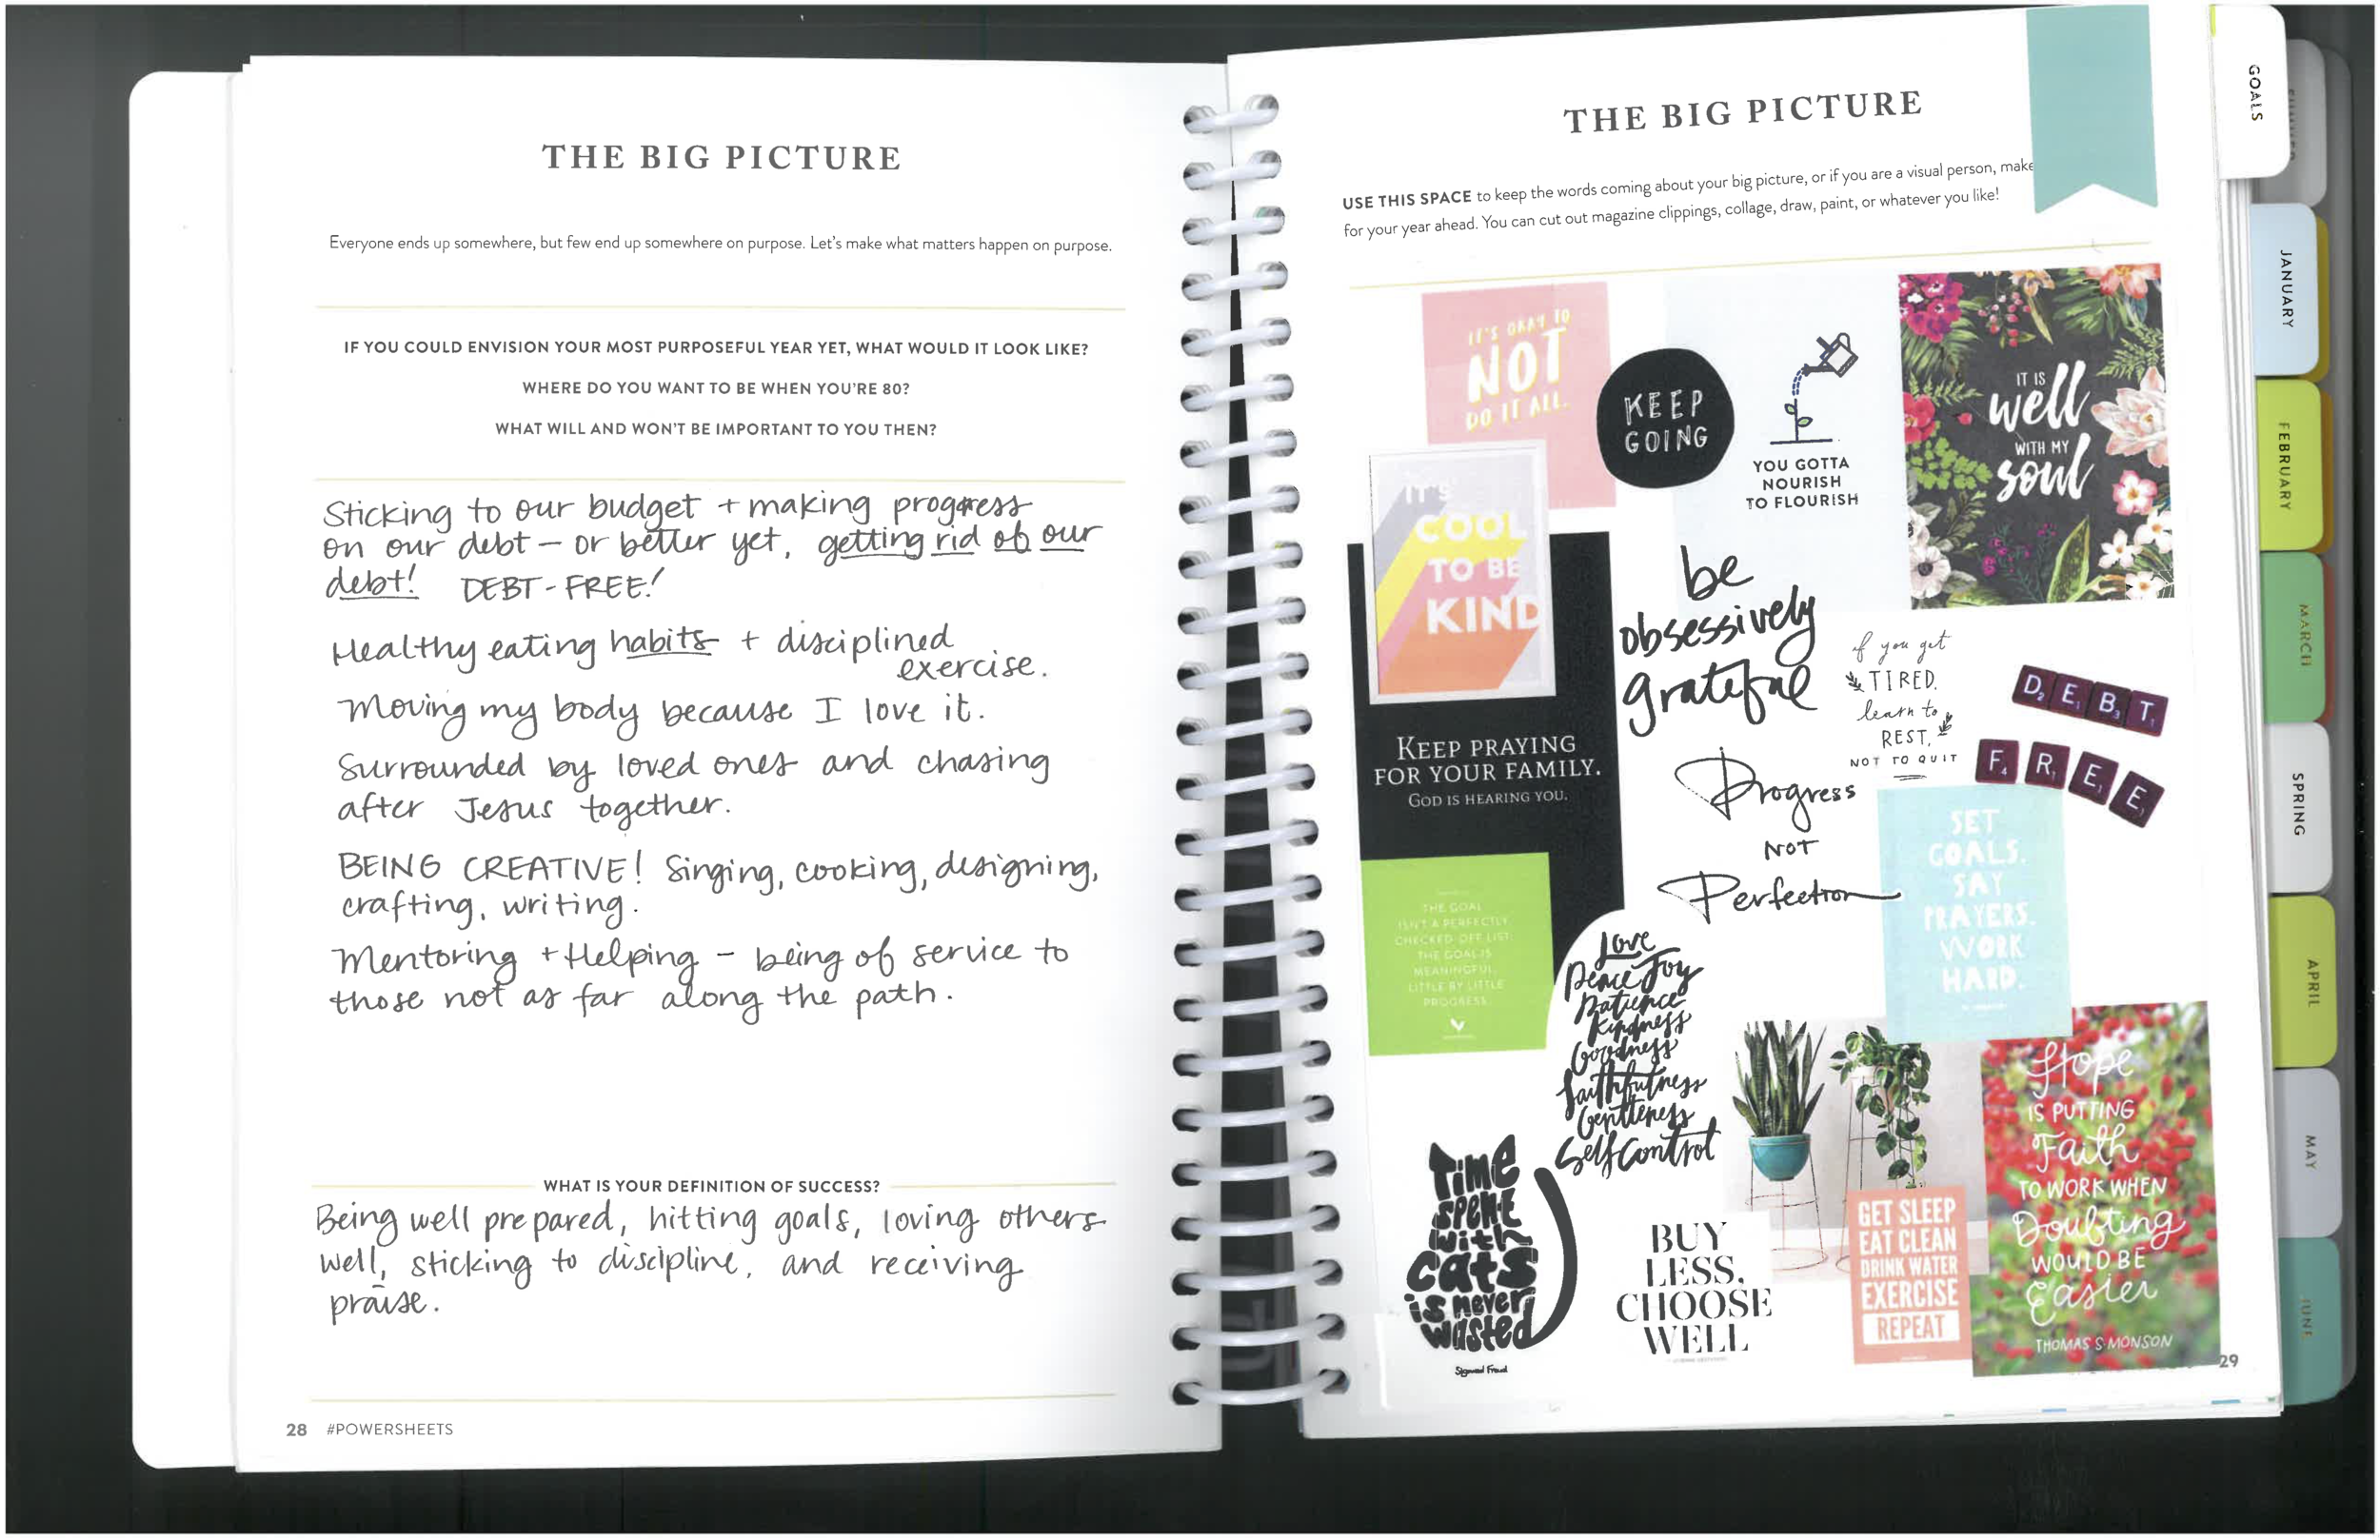 THE BIG PICTURE
Everyone ends up somewhere, but few end up somewhere on purpose. Let's make what matters happen on purpose.
IF YOU COULD ENVISION YOUR MOST PURPOSEFUL YEAR YET, WHAT WOULD IT LOOK LIKE?
WHERE DO YOU WANT TO BE WHEN YOU'RE 80?
WHAT WILL AND WON'T BE IMPORTANT TO YOU THEN?
Sticking to our budget + making progress
on our debt - or better yet, getting rid of our
debt! DEBT-FREE!
Healthy eating habits + disciplined
exercise.
Moving my body because I love it.
Surrounded by loved ones and chasing
after Jesus together.
BEING CREATIVE! Singing, cooking, designing,
crafting, writing.
Mentoring + Helping - being of service to
those not as far along the path.
WHAT IS YOUR DEFINITION OF SUCCESS?
Being well prepared, hitting goals, loving others
well, sticking to discipline, and receiving
praise.
28 #POWERSHEETS
THE BIG PICTURE
USE THIS SPACE to keep the words coming about your big picture, or if you are a visual person, make
for your year ahead. You can cut out magazine clippings, collage, draw, paint, or whatever you like!
IT'S OKAY TO
NOT
DO IT ALL.
KEEP
GOING
YOU GOTTA
NOURISH
TO FLOURISH
IT IS
well
WITH MY
soul
IT'S
COOL
TO BE
KIND
be
obsessively
grateful
if you get
TIRED,
learn to
REST,
NOT TO QUIT
DEBT
FREE
KEEP PRAYING
FOR YOUR FAMILY.
GOD IS HEARING YOU.
Progress
NOT
Perfection
SET
GOALS.
SAY
PRAYERS.
WORK
HARD.
THE GOAL
ISN'T A PERFECTLY
CHECKED-OFF LIST.
THE GOAL IS
MEANINGFUL,
LITTLE BY LITTLE
PROGRESS.
Love
Peace Joy
Patience
Kindness
Goodness
Faithfulness
Gentleness
Self Control
Time
spent
with
cats
is never
wasted
Sigmund Freud
BUY
LESS,
CHOOSE
WELL
GET SLEEP
EAT CLEAN
DRINK WATER
EXERCISE
REPEAT
Hope
IS PUTTING
Faith
TO WORK WHEN
Doubting
WOULD BE
Easier
THOMAS S. MONSON
29
GOALS
JANUARY
FEBRUARY
MARCH
SPRING
APRIL
MAY
JUNE